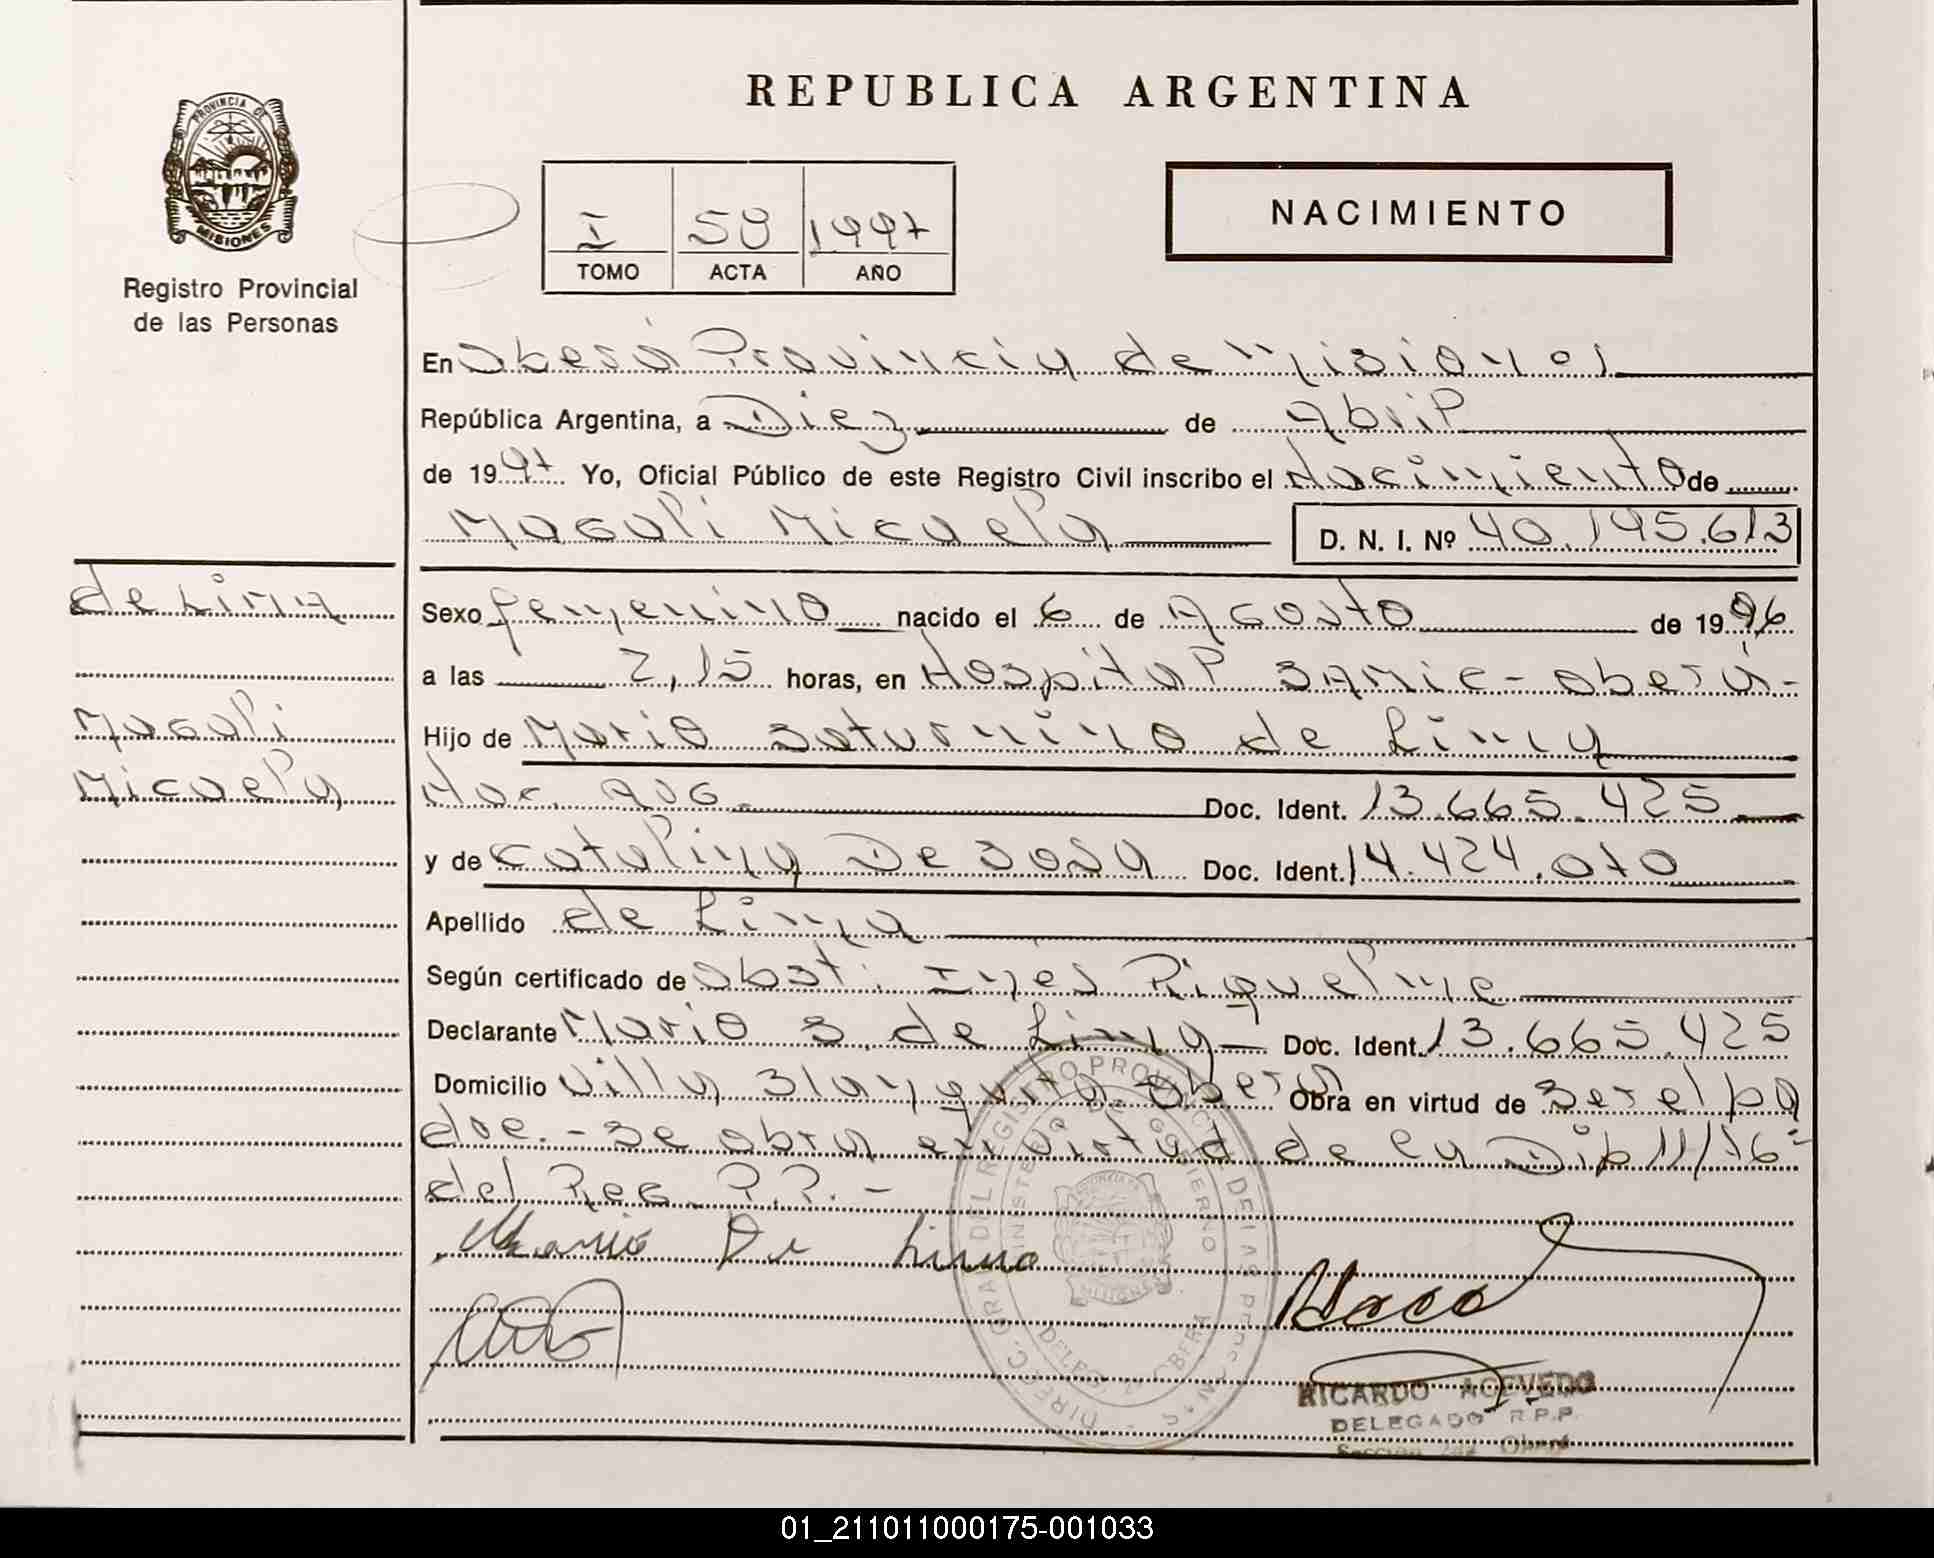 REPUBLICA ARGENTINA
PROVINCIA DE
MISIONES
Registro Provincial
de las Personas
I 58 1997
TOMO ACTA AÑO
NACIMIENTO
En Oberá Provincia de Misiones
República Argentina, a Diez de Abril
de 1997 Yo, Oficial Público de este Registro Civil inscribo el Nacimiento de
Magali Micaela D. N. I. Nº 40.195.613
de Lima
Magali
Micaela
Sexo femenino nacido el 6 de Agosto de 1996
a las 2,15 horas, en Hospital SAMIC - Oberá -
Hijo de Mario Saturnino de Lima
Nac. Arg. Doc. Ident. 13.665.425
y de Catalina De Sosa Doc. Ident. 14.424.070
Apellido de Lima
Según certificado de Obst. Ines Riquelme
Declarante Mario S. de Lima Doc. Ident. 13.665.425
Domicilio Villa Oberá Obra en virtud de Ser el pa
dre. - Se obra en virtud de la Disp 11/76 -
del Reg. P.P. -
Mario De Lima
DIREC. GRAL DEL REGISTRO PROVINCIAL DE LAS PERSONAS
MINISTERIO DE GOBIERNO
DELEGACION OBERA
RICARDO ACEVEDO
DELEGADO R.P.P.
Sección Oberá
01_211011000175-001033